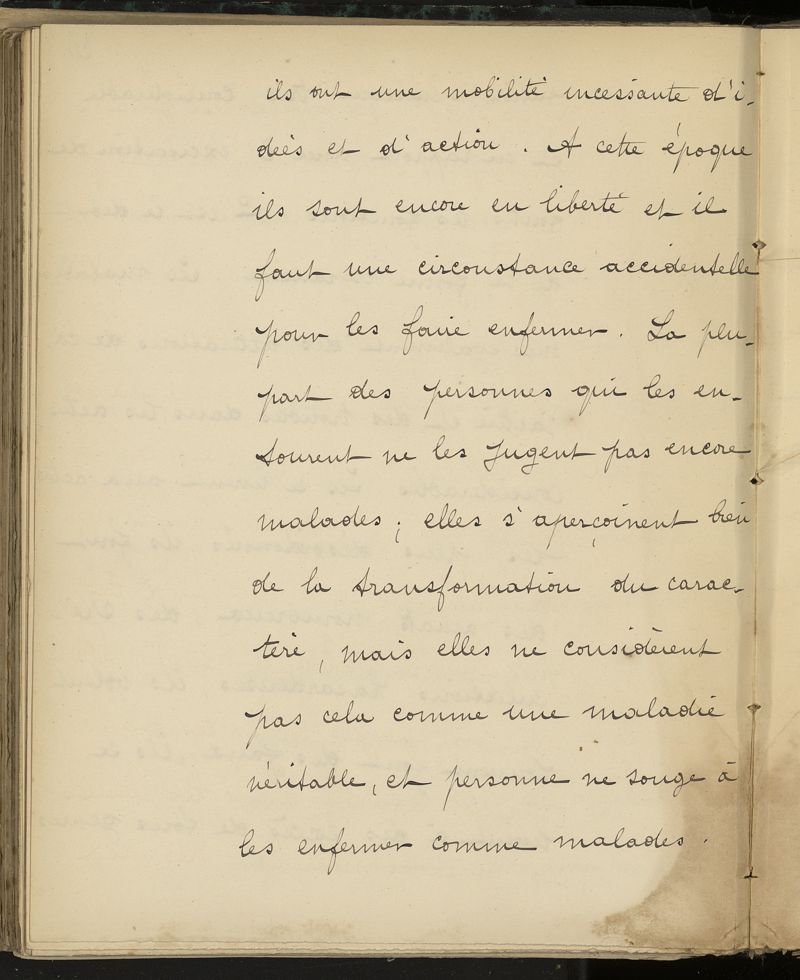 ils ont une mobilité incessante d'i-
dées et d'action. A cette époque
ils sont encore en liberté et il
faut une circonstance accidentelle
pour les faire enfermer. La plu-
part des personnes qui les en-
tourent ne les jugent pas encore
malades ; elles s'aperçoivent bien
de la transformation du carac-
tère, mais elles ne considèrent
pas cela comme une maladie
véritable, et personne ne songe à
les enfermer comme malades.